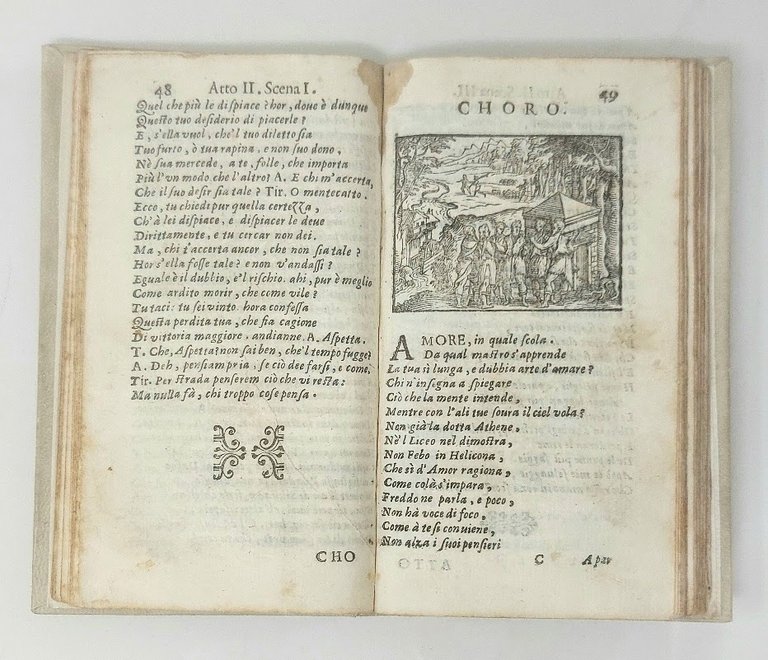 48 Atto II. Scena I.
Quel che più le dispiace? hor, doue è dunque
Questo tuo desiderio di piacerle?
E, s'ella vuol, che'l tuo diletto sia
Tuo furto, ò tua rapina, e non suo dono,
Nè sua mercede, a te, folle, che importa
Più l'vn modo che l'altro? A. E chi m'accerta,
Che il suo desir sia tale? Tir. O mentecatto.
Ecco, tu chiedi pur quella certezza,
Ch'à lei dispiace, e dispiacer le deue
Dirittamente, e tu cercar non dei.
Ma, chi t'accerta ancor, che non sia tale?
Hor s'ella fosse tale? e non v'andassi?
Eguale è il dubbio, e'l rischio. ahi, pur è meglio
Come ardito morir, che come vile?
Tu taci: tu sei vinto. hora confessa
Questa perdita tua, che fia cagione
Di vittoria maggiore. andianne. A. Aspetta.
T. Che, Aspetta? non sai ben, che'l tempo fugge?
A. Deh, pensiam pria, se ciò dee farsi, e come.
Tir. Per strada penserem ciò che vi resta:
Ma nulla fà, chi troppo cose pensa.
CHO
49
CHORO.
AMORE, in quale scola.
Da qual mastro s'apprende
La tua sì lunga, e dubbia arte d'amare?
Chi n'insegna a spiegare
Ciò che la mente intende,
Mentre con l'ali tue soura il ciel vola?
Non già la dotta Athene,
Nè'l Liceo nel dimostra,
Non Febo in Helicona,
Che sì d'Amor ragiona,
Come colà s'impara,
Freddo ne parla, e poco,
Non hà voce di foco,
Come à te si conuiene,
Non alza i suoi pensieri
C Apar